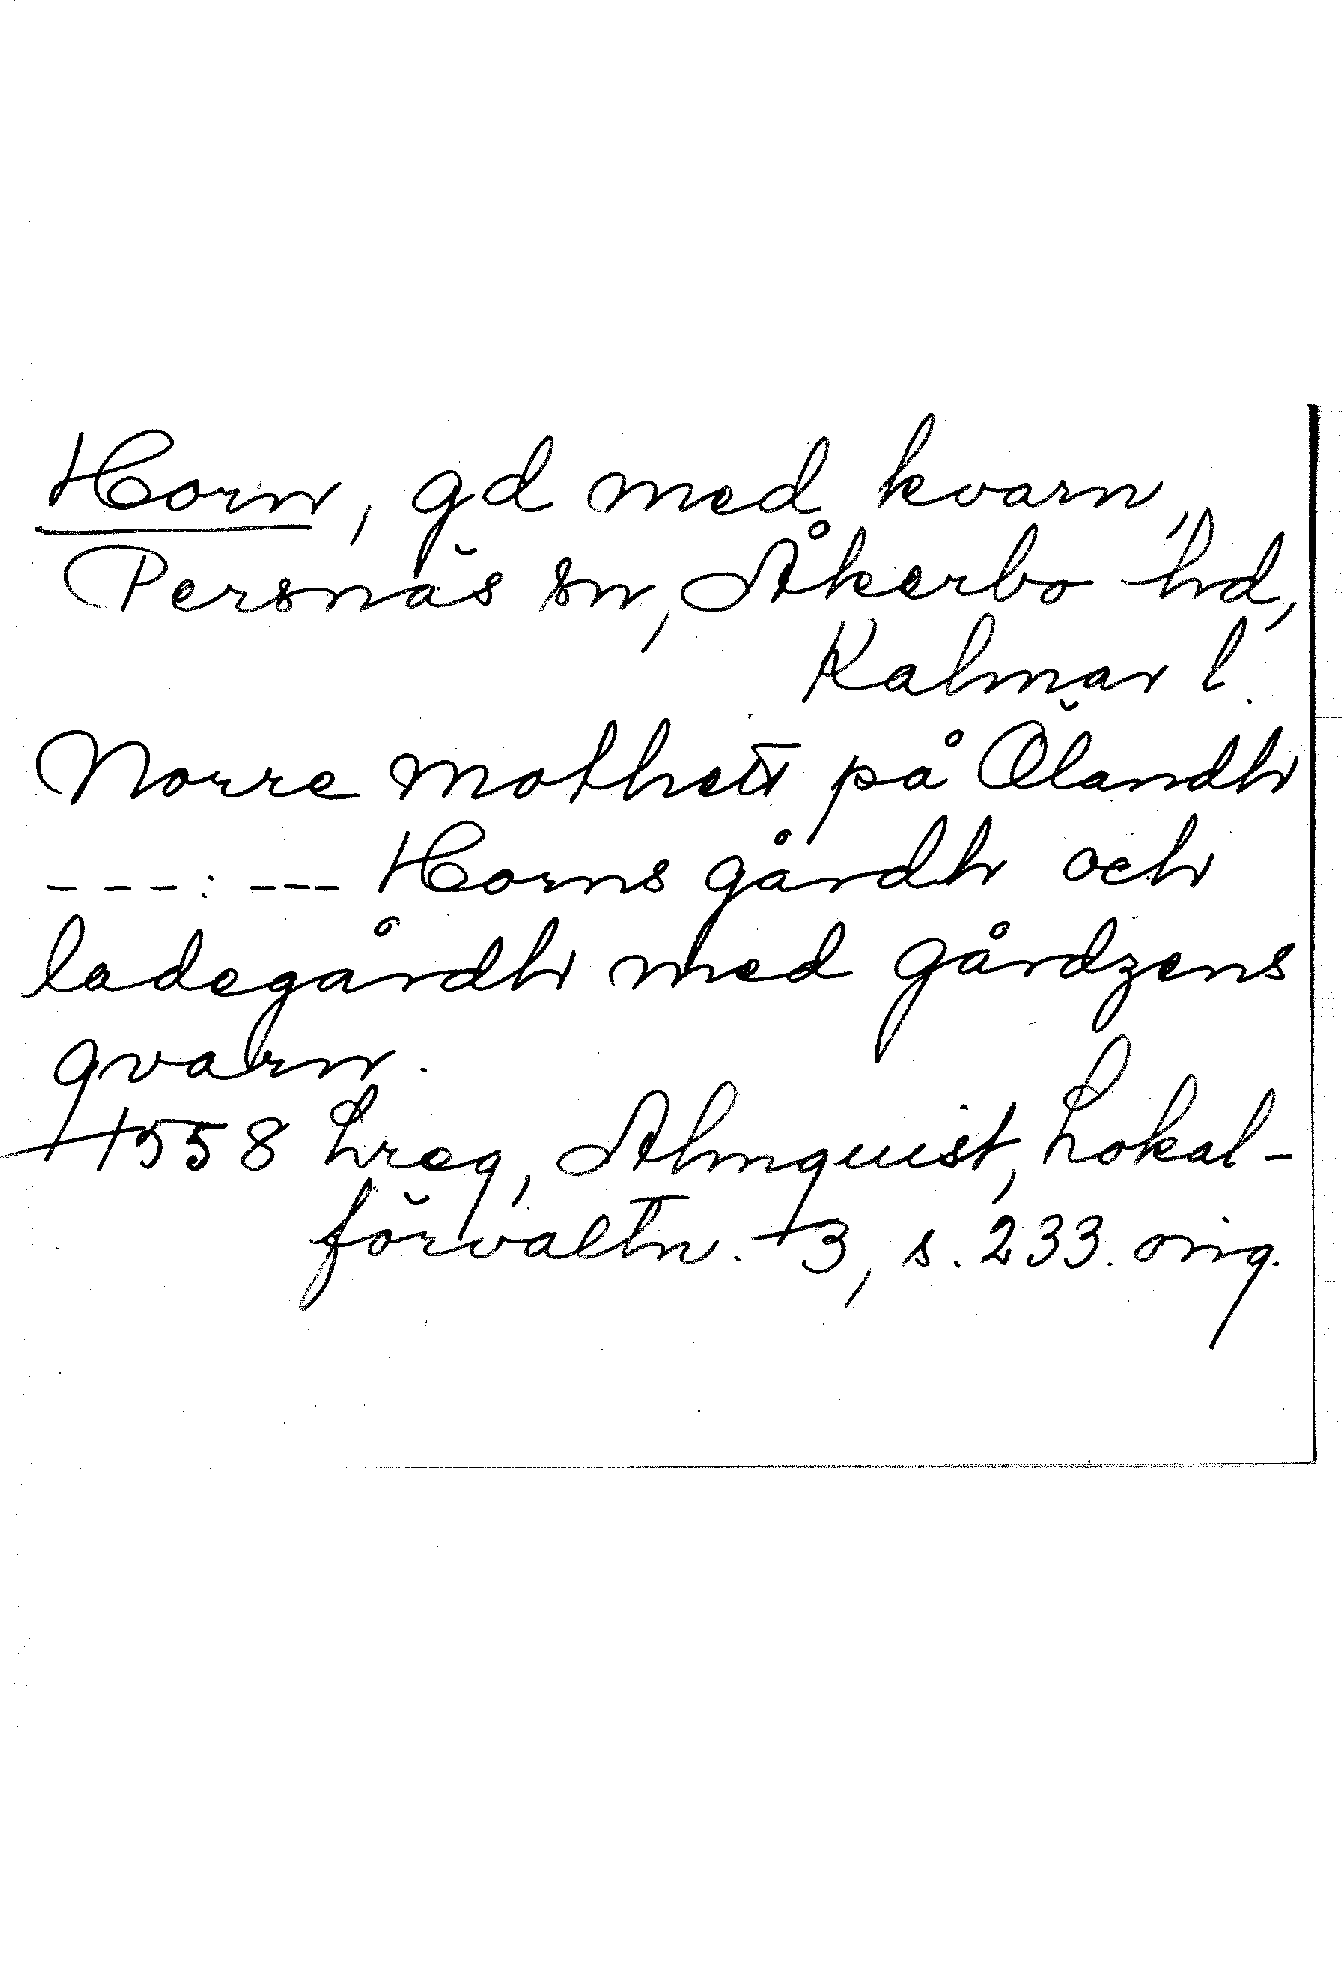 Horn, gd med kvarn,
Persnäs sn, Åkerbo hd,
Kalmar l.
Norre mothett på Ölandh
---:--- Horns gårdh och
ladegårdh med gårdzens
qvarn.
1558 Lreg, Almquist, Lokal-
förvaltn. 3, s. 233. orig.